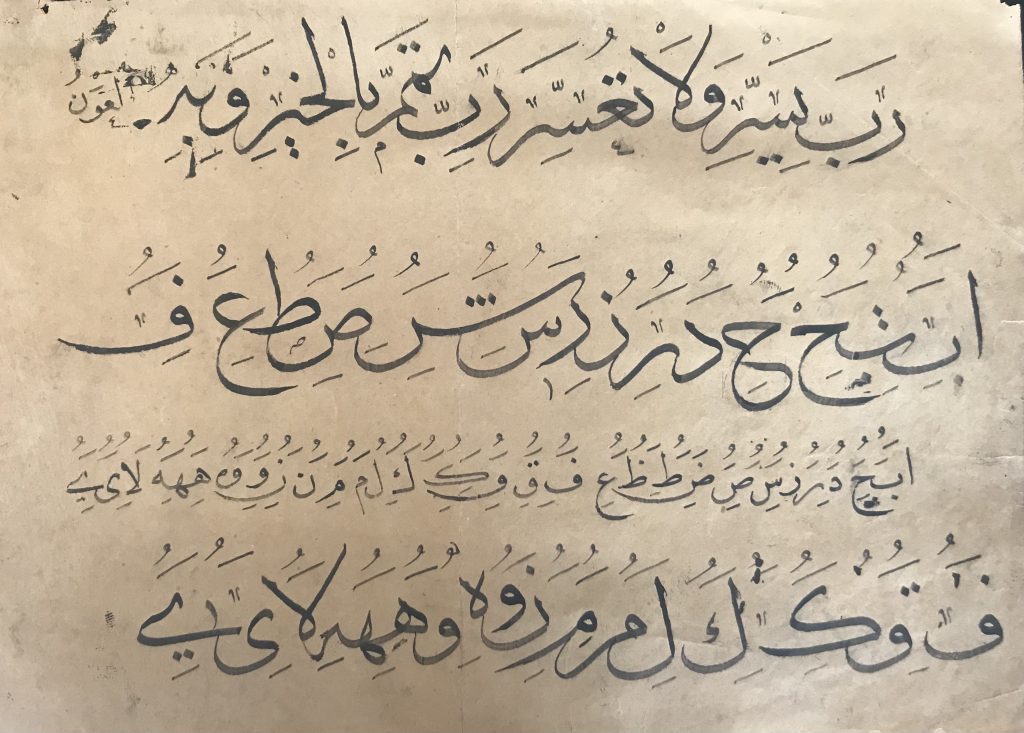 رَبِّ يَسِّرْ وَلَا تُعَسِّرْ رَبِّ تَمِّمْ بِالْخَيْرِ وَبِهِ الْعَوْنُ
ا ب ج ح د ر ز س ش ص ط ع ف
ا ب ج د ر ز س ص ض ط ظ ع ف ق و ك ك ل م م ن ن و ه ه لا ى ے
ف ق و ك ك ل م م ن و ه و ه لا ى ے